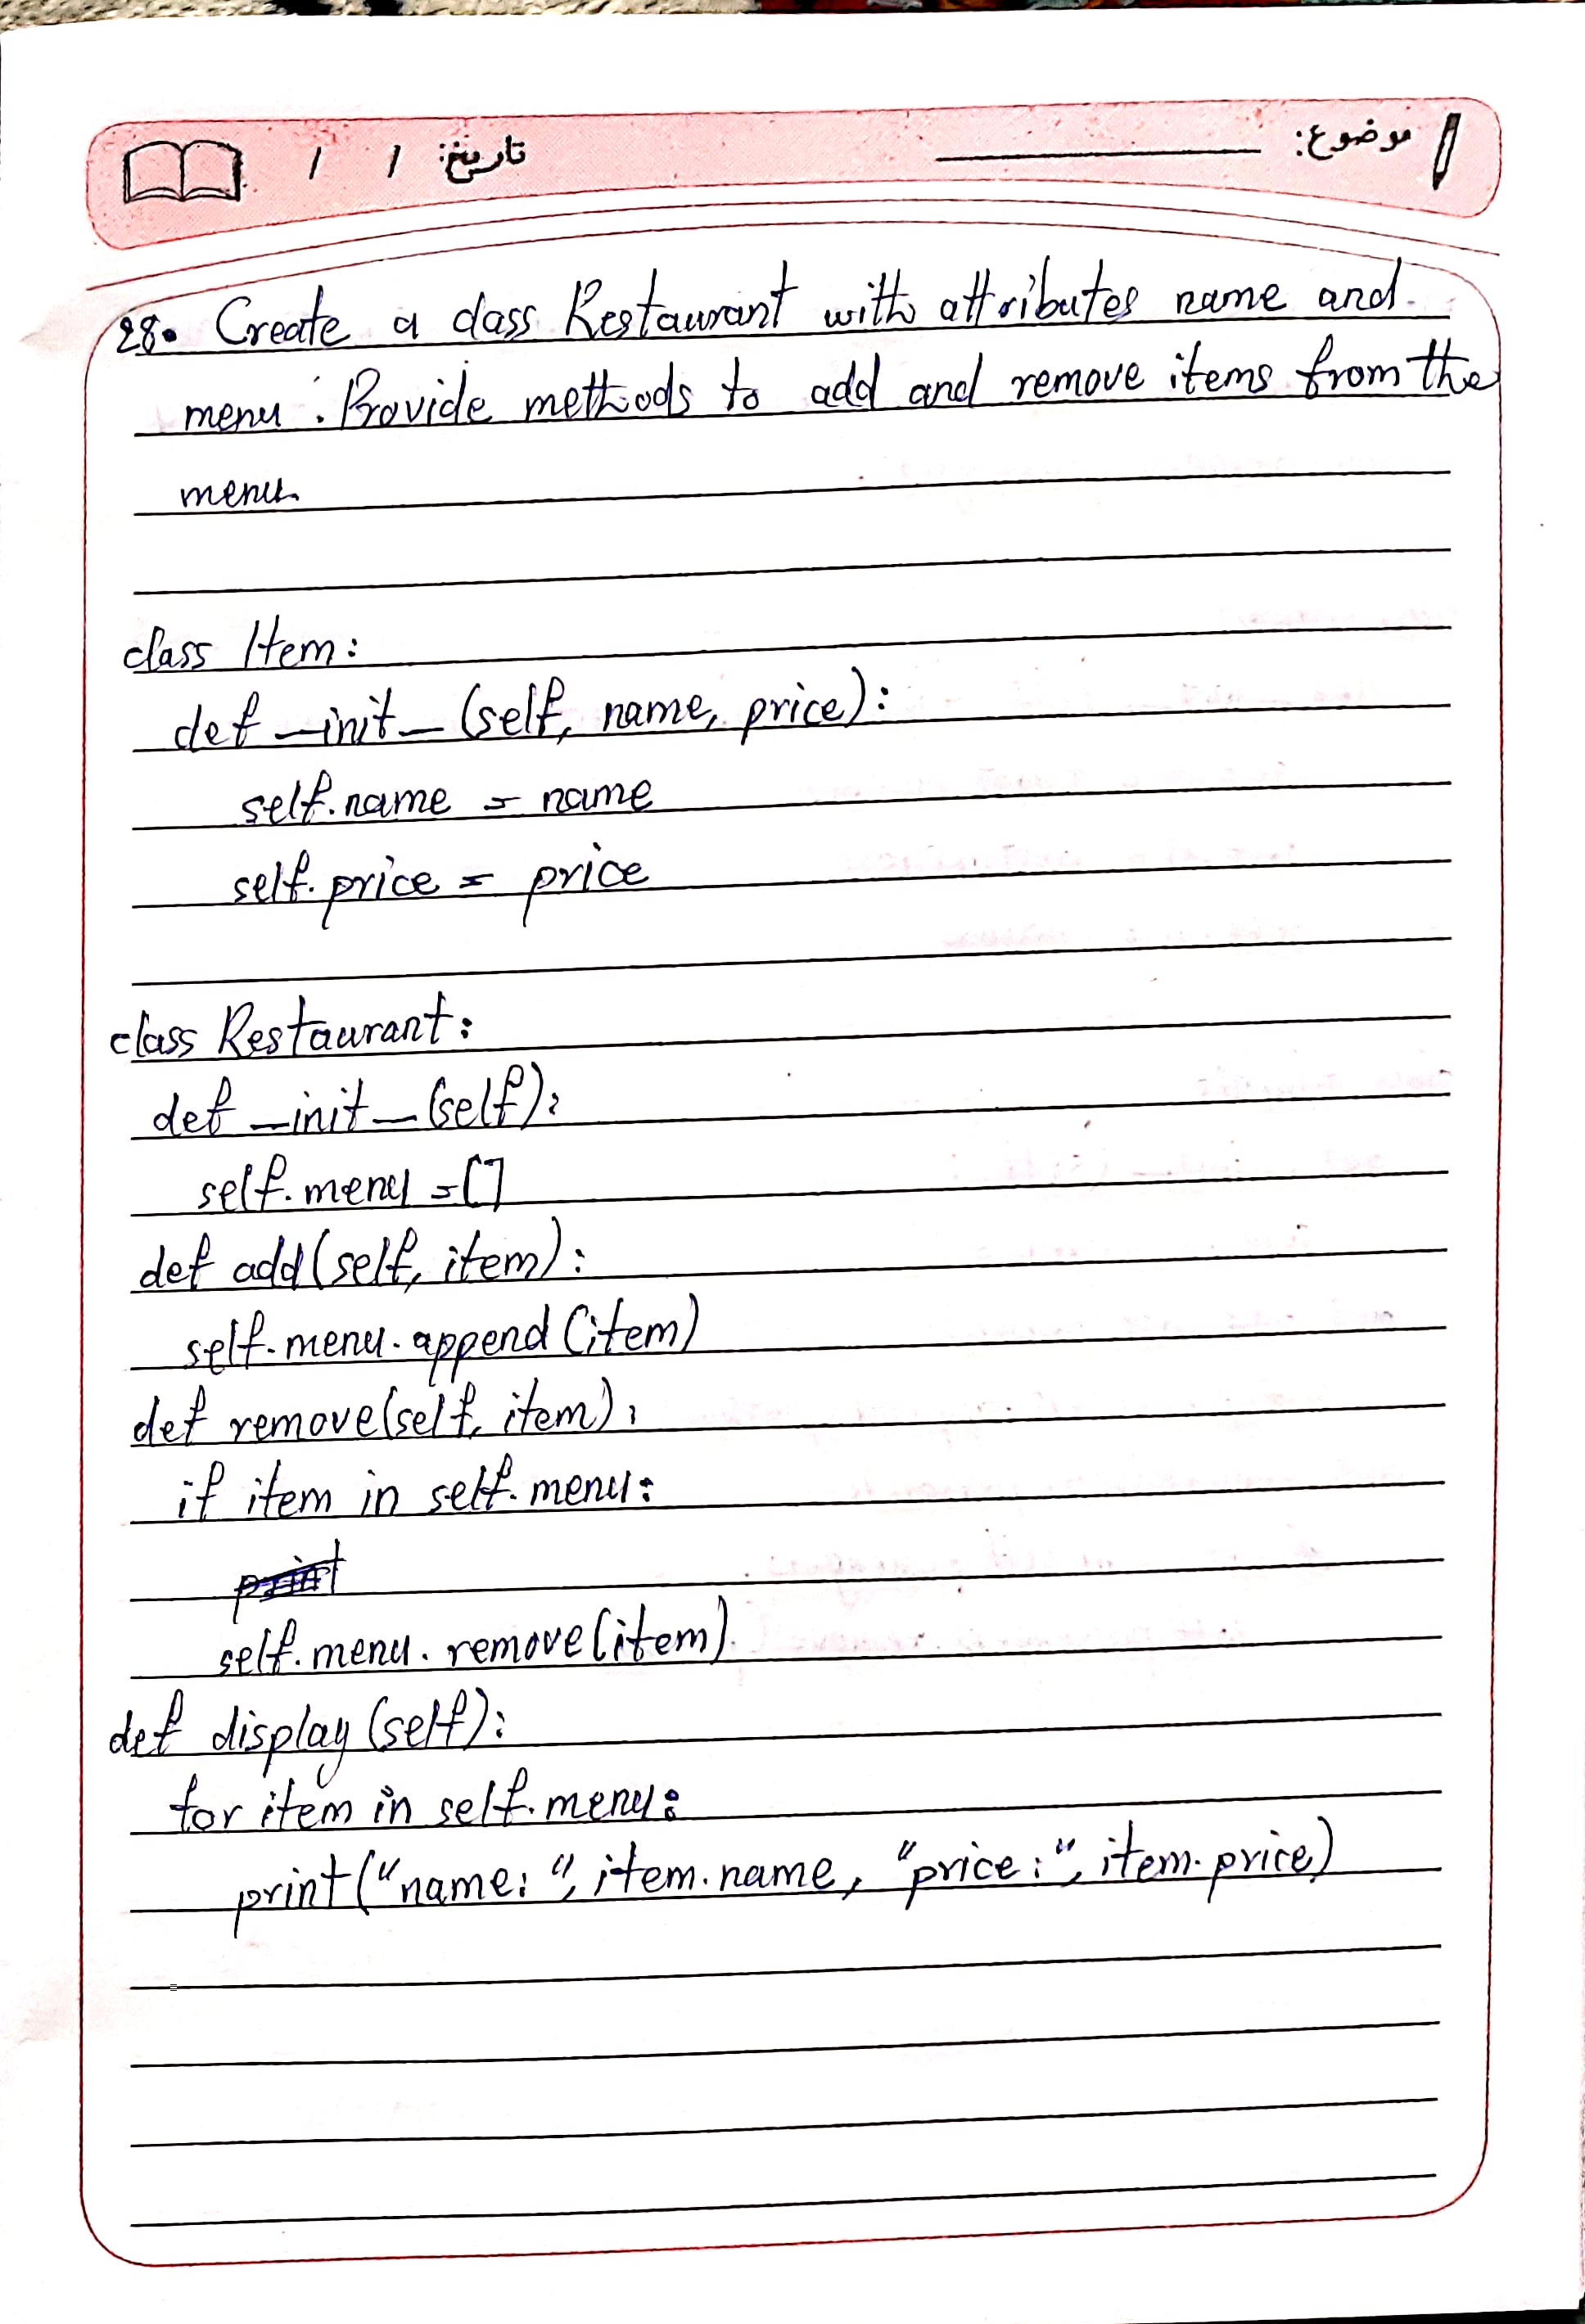 موضوع: تاريخ: / /
28. Create a class Restaurant with attributes name and
menu. Provide methods to add and remove items from the
menu.
class Item:
def _init_ (self, name, price):
self.name = name
self.price = price
class Restaurant:
def _init_ (self):
self.menu = []
def add(self, item):
self.menu.append(item)
def remove(self, item):
if item in self.menu:
print
self.menu.remove(item)
def display(self):
for item in self.menu:
print("name:", item.name, "price:", item.price)